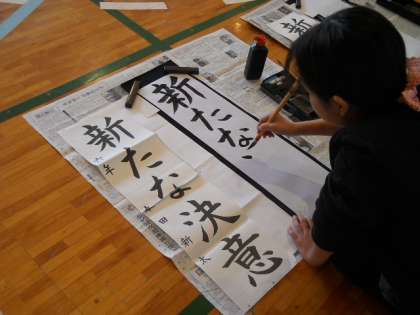 新たな決意
六年
田 新太
新たな
新